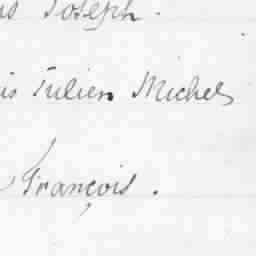 Joseph.
is Julien Michel
François.